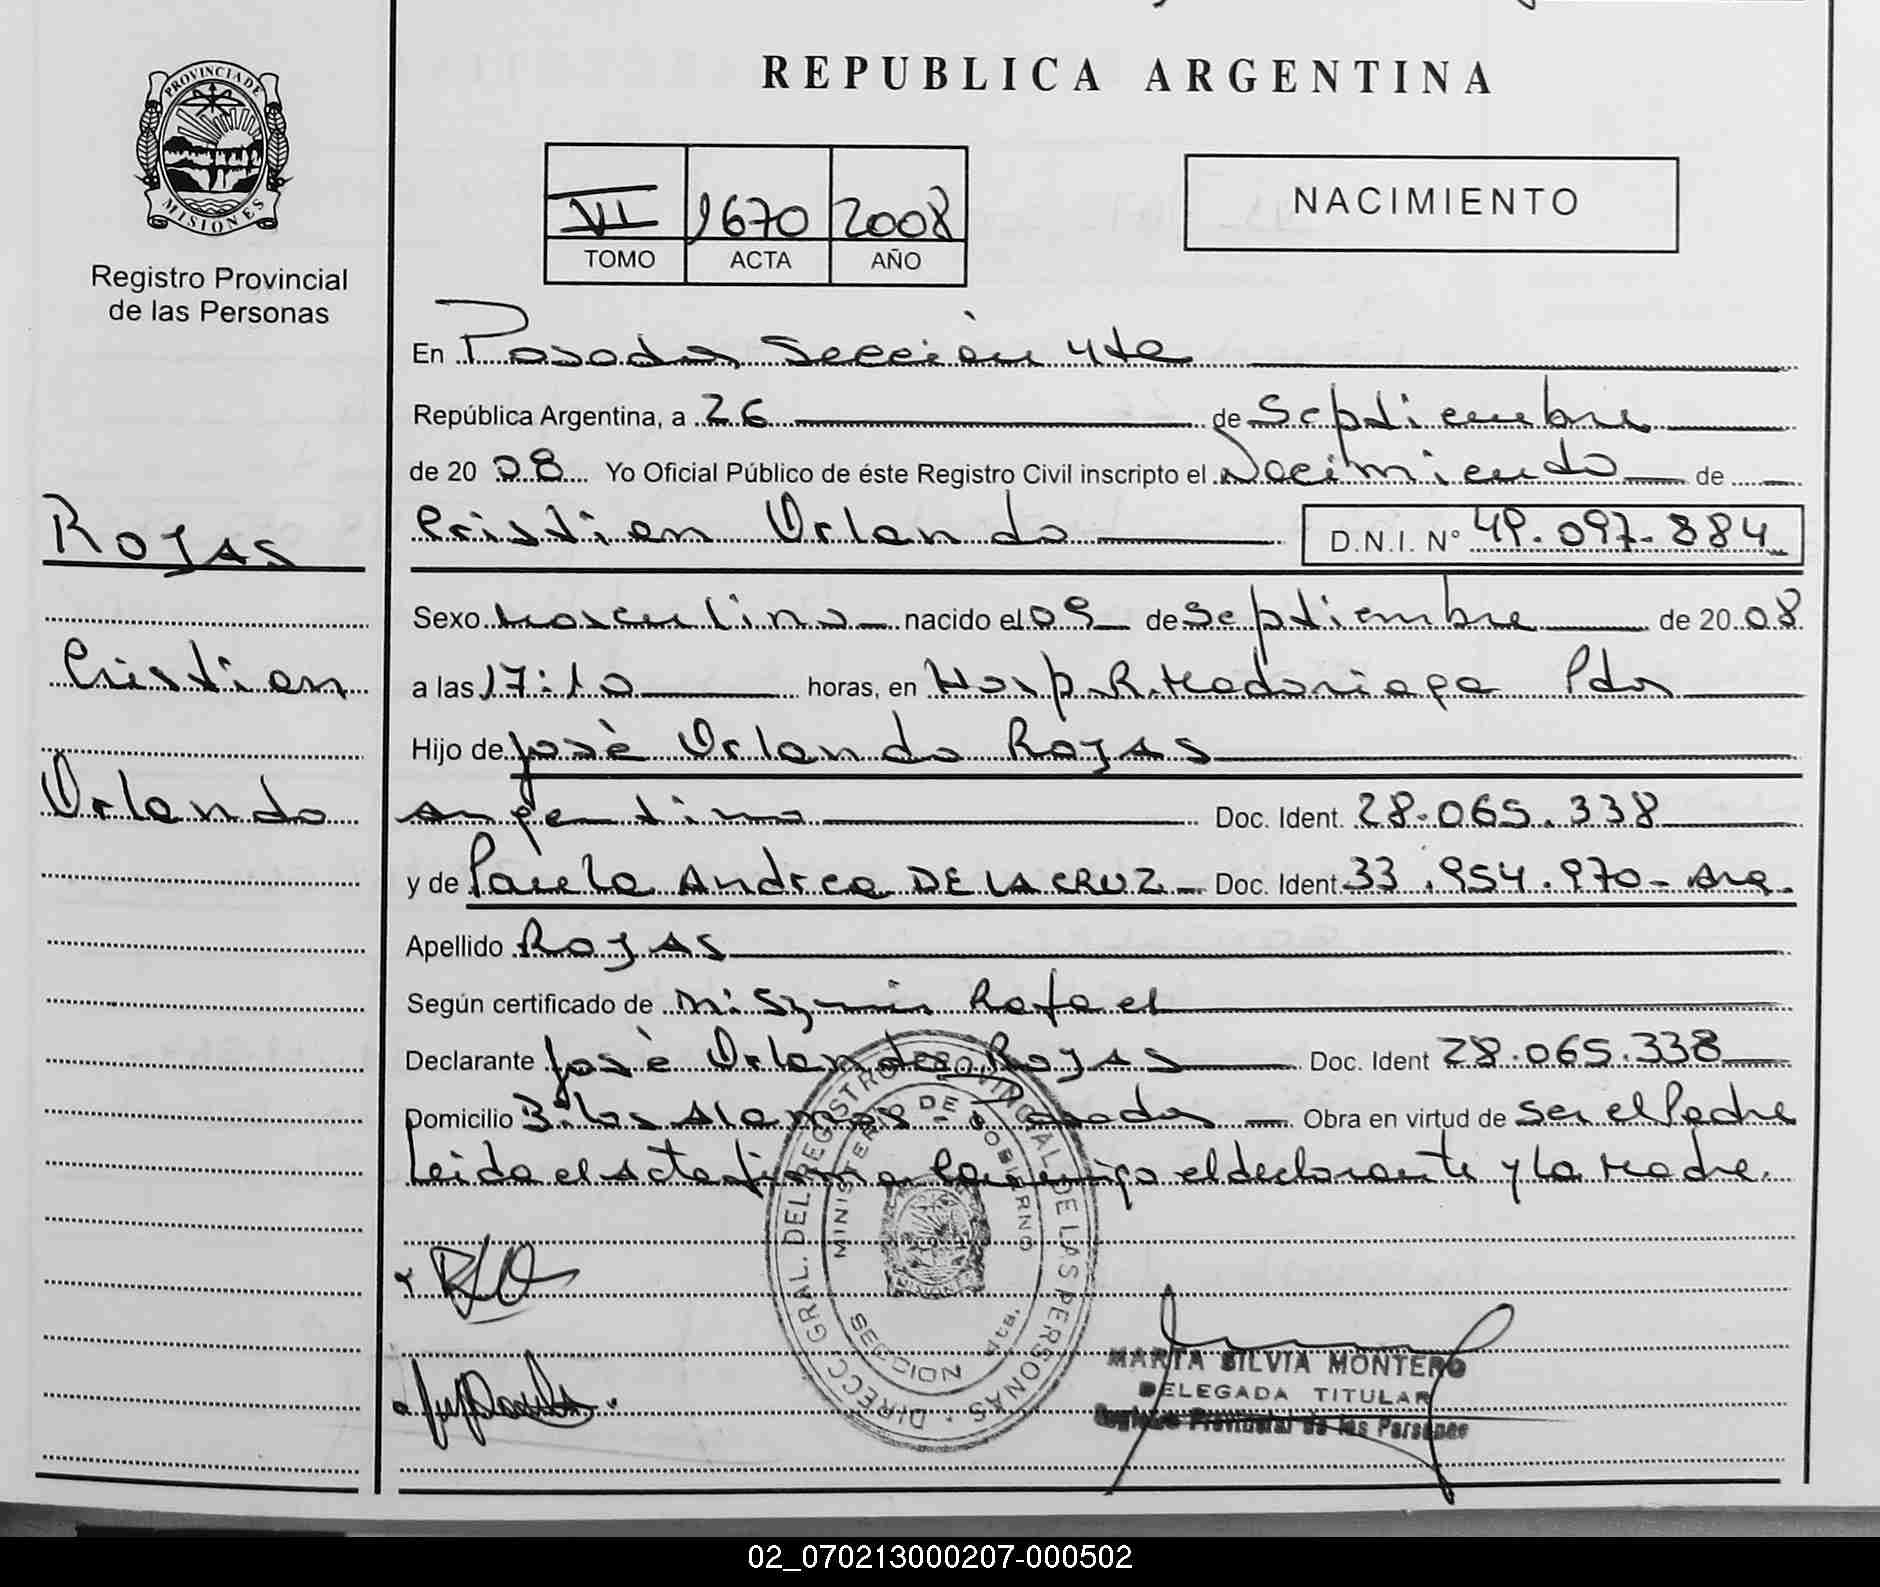 REPUBLICA ARGENTINA
PROVINCIA DE
MISIONES
Registro Provincial
de las Personas
VI 1670 2008
TOMO ACTA AÑO
NACIMIENTO
En Posadas, Sección 4ta
República Argentina, a 26 de Septiembre
de 20 08 Yo Oficial Público de éste Registro Civil inscripto el Nacimiento de
Cristian Orlando D.N.I. Nº 49.097.884
Sexo Masculino nacido el 09 de Septiembre de 20 08
a las 17:10 horas, en Hosp. R. Madariaga Pdas
Hijo de José Orlando Rojas
Argentino Doc. Ident. 28.065.338
y de Paula Andrea DE LA CRUZ Doc. Ident. 33.954.970 - Arg.
Apellido Rojas
Según certificado de Rafael
Declarante José Orlando Rojas Doc. Ident 28.065.338
Domicilio B. los Alamos - Posadas Obra en virtud de ser el Padre
Leida el Acta firman conmigo el declarante y la Madre.
ROJAS
Cristian
Orlando
DIRECC. GRAL. DEL REGISTRO PROVINCIAL DE LAS PERSONAS
MINISTERIO DE GOBIERNO
SECCION 4ta.
MARTA SILVIA MONTERO
DELEGADA TITULAR
Registro Provincial de las Personas
02_070213000207-000502